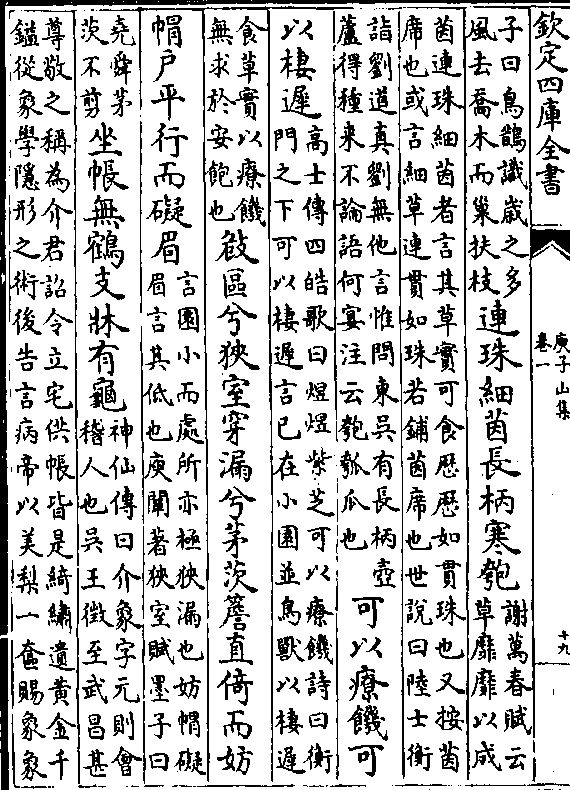 欽定四庫全書
庾子山集
卷一
十九
子曰鳥鵲識歲之多
風去喬木而巢扶枝
連珠細茵長柄寒匏
謝萬春賦云
草靡靡以成
茵連珠細茵者言其草實可食歴歴如貫珠也又按茵
席也或言細草連貫如珠若鋪茵席也世說曰陸士衡
詣劉道真劉無他言惟問東吳有長柄壺
蘆得種来不論語何宴注云匏瓠瓜也
可以療饑可
以棲遲
高士傳四皓歌曰煜煜紫芝可以療饑詩曰衡
門之下可以棲遲言已在小園並鳥獸以棲遲
食草實以療饑
無求於安飽也
敧區兮狹室穿漏兮茅茨簷直倚而妨
帽户平行而礙眉
言園小而處所亦極狹漏也妨帽礙
眉言其低也庾闡著狹室賦墨子曰
堯舜茅
茨不剪
坐帳無鶴支牀有龜
神仙傳曰介象字元則會
稽人也吳王徵至武昌甚
尊敬之稱為介君詔令立宅供帳皆是綺繡遺黃金千
鎰從象學隱形之術後告言病帝以美梨一奩賜象象